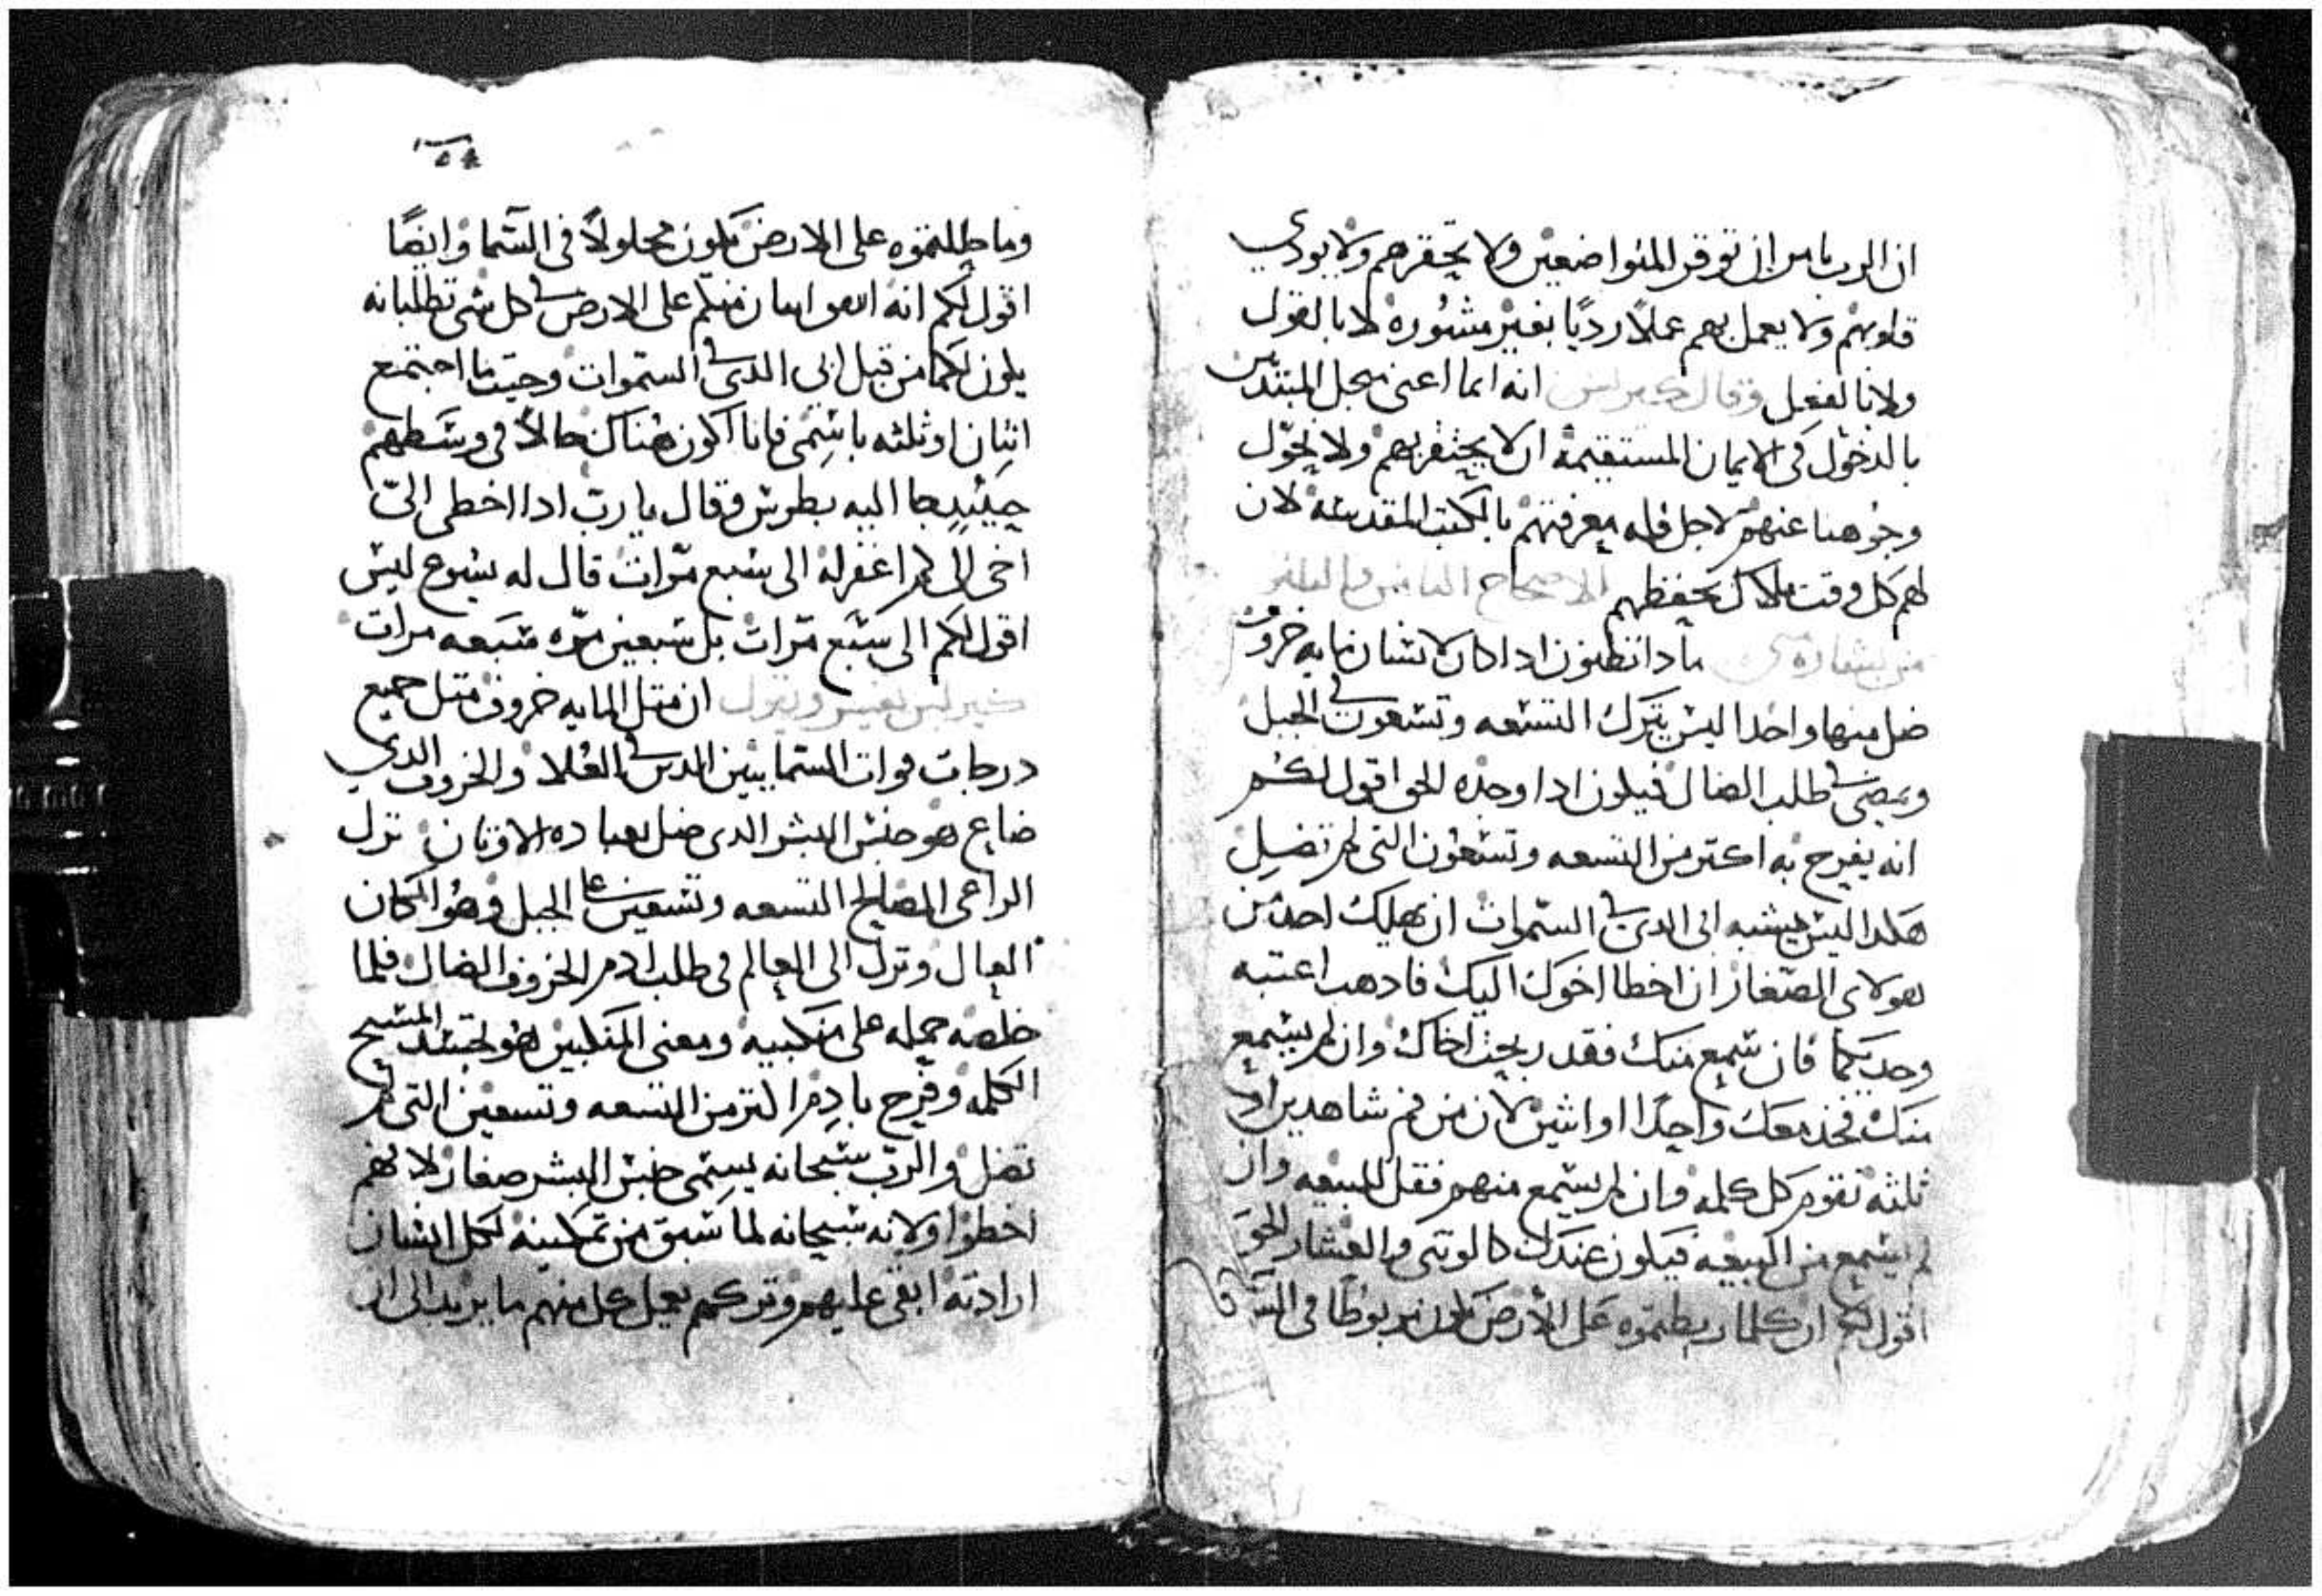 ان الرب يامر ان توقر المتواضعين ولا تحتقرهم ولا يودي
قلوبهم ولا يعمل بهم عملاً رديًا بغير مشوره لا بالقول
ولا بالفعل وقال كيرلس انه انما اعنى من جل المبتديين
بالدخول فى الايمان المستقيمه ان لا يحتقر بهم ولا نحوّل
وجوهنا عنهم لاجل قله معرفتهم بالكتب المقدسه لان
لهم كل وقت ملاك يحفظهم الاصحاح الثامن والثلثون
من بشاره متى مادا تظنون ادا كان لانسان مايه خروف
ضل منها واحدا اليس يترك التسعه وتسعون فى الجبل
ويمضى فى طلب الضال فيكون ادا وجده الحق اقول لكم
انه يفرح به اكتر من التسعه وتسعون التى لم تضل
هكدا ليس مشيه ابى الدى فى السموات ان يهلك احد من
هولاى الصغار ان اخطا اخوك اليك فادهب اعتبه
وحديكما فان سمع منك فقد ربحت اخاك وان لم يسمع
منك فخد معك واحدًا او اتنين لان من فم شاهدين او
ثلثه تقوم كل كلمه وان لم يسمع منهم فقل للبيعه وان
لم يسمع من البيعه فيكون عندك كالوتنى والعشار الحق
اقول لكم ان كلما ربطتموه على الارض يكون مربوطًا فى السما
وما حللتموه على الارض يكون محلولاً فى السما وايضًا
اقول لكم انه ادا اتفق اتنان منكم على الارض فى كل شى تطلبانه
يكون لكما من قبل ابى الدى فى السموات وحيت ما اجتمع
اتنان او ثلثه باسمى فانا اكون هناك حالاً فى وسطهم
حينيد جا اليه بطرس وقال يا رب ادا اخطى الىّ
اخى الى كم اغفر له الى سبع مرّات قال له يسوع ليس
اقول لكم الى سبع مرّات بل سبعين مرّه سبعه مرات
كيرلس يفسر ويقول ان متل المايه خروف متل جميع
درجات قوات السماييين الدين فى العُلا والخروف الدي
ضاع هو جنس البشر الدى ضل بعباده الاوتان ترك
الراعى الصالح التسعه وتسعين على الجبل وهو المكان
العال ونزل الى العالم فى طلب ادم الخروف الضال فلما
خلصه حمله على منكبيه ومعنى المنكبين هو تجسد المسيح
الكلمه وفرح بادم اكتر من التسعه وتسعين التى لم
تضل والرب سبحانه يسمى جنس البشر صغار لانهم
اخطوا ولانه سبحانه لما سبق من تمكينه لكل انسان
ارادته ابقى عليهم وتركهم يعمل كل منهم ما يريد الى ان